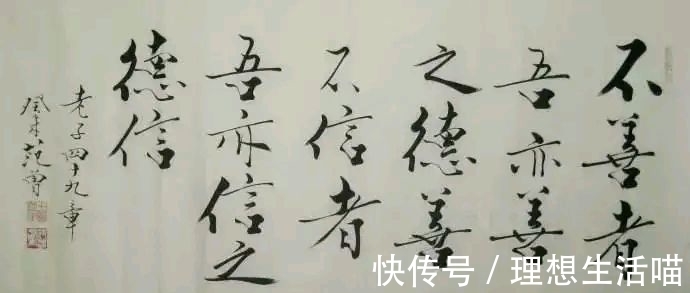 不善者
吾亦善
之德善
不信者
吾亦信之
德信
老子四十九章
癸未范曾
快传号/理想生活喵